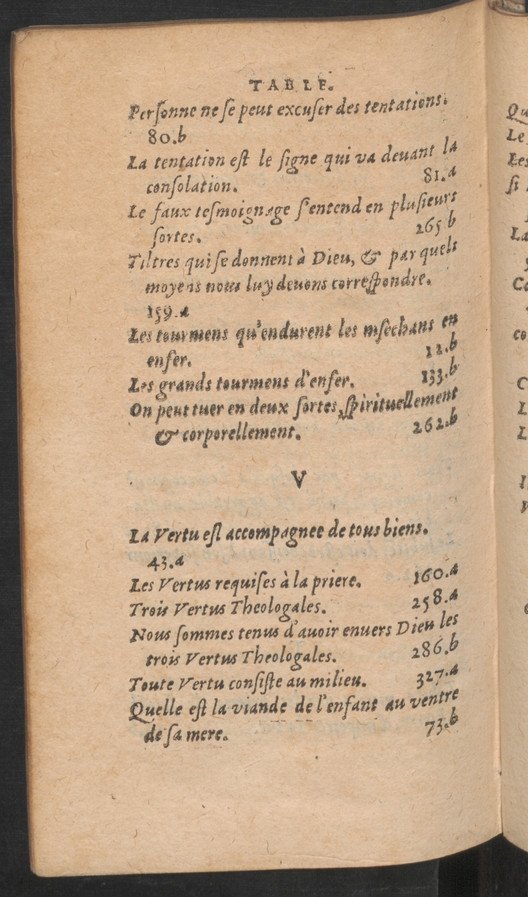 TABLE.
Personne ne se peut excuser des tentations.
80.b
La tentation est le signe qui va deuant la
consolation. 81.a
Le faux tesmoignage s'entend en plusieurs
sortes. 265 b
Tiltres qui se donnent à Dieu, & par quels
moyens nous luy deuons correspondre.
159.a
Les tourmens qu'endurent les meschans en
enfer. 12.b
Les grands tourmens d'enfer. 133.b
On peut tuer en deux sortes, spirituellement
& corporellement. 262.b
V
La Vertu est accompagnee de tous biens.
43.a
Les Vertus requises à la priere. 160.a
Trois Vertus Theologales. 258.a
Nous sommes tenus d'auoir enuers Dieu les
trois Vertus Theologales. 286.b
Toute Vertu consiste au milieu. 327.a
Quelle est la viande de l'enfant au ventre
de sa mere. 73.b
Qu
Le
Les
si
La
C
L
L